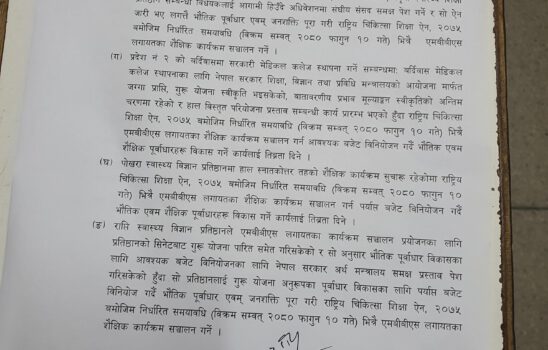 प्रतिष्ठान सम्बन्धी विधेयकलाई आगामी हिउँदे अधिवेशनमा संघीय संसद समक्ष पेश गर्ने र सो ऐन
जारी भए लगत्तै भौतिक पूर्वाधार एवम् जनशक्ति पूरा गरी राष्ट्रिय चिकित्सा शिक्षा ऐन, २०७५
बमोजिम निर्धारित समयावधि (विक्रम सम्वत् २०८० फागुन १० गते) भित्रै एमबीबीएस
लगायतका शैक्षिक कार्यक्रम सञ्चालन गर्ने ।
(ग) प्रदेश नं २ को बर्दिवासमा सरकारी मेडिकल कलेज स्थापना गर्ने सम्बन्धमाः बर्दिवास मेडिकल
कलेज स्थापनाका लागि नेपाल सरकार शिक्षा, विज्ञान तथा प्रविधि मन्त्रालयको आयोजना मार्फत
जग्गा प्राप्ति, गुरु योजना स्वीकृति भइसकेको, वातावरणीय प्रभाव मूल्याङ्कन स्वीकृतिको अन्तिम
चरणमा रहेको र हाल विस्तृत परियोजना प्रस्ताव सम्बन्धी कार्य प्रारम्भ भएको हुँदा राष्ट्रिय चिकित्सा
शिक्षा ऐन, २०७५ बमोजिम निर्धारित समयावधि (विक्रम सम्वत् २०८० फागुन १० गते) भित्रै
एमबीबीएस लगायतका शैक्षिक कार्यक्रम सञ्चालन गर्न आवश्यक बजेट विनियोजन गर्दै भौतिक एवम
शैक्षिक पूर्वाधारहरू विकास गर्ने कार्यलाई तिब्रता दिने ।
(घ) पोखरा स्वास्थ्य विज्ञान प्रतिष्ठानमा हाल स्नातकोत्तर तहको शैक्षिक कार्यक्रम सुचारू रहेकोमा राष्ट्रिय
चिकित्सा शिक्षा ऐन, २०७५ बमोजिम निर्धारित समयावधि (विक्रम सम्वत् २०८० फागुन १०
गते) भित्रै एमबीबीएस लगायतका शैक्षिक कार्यक्रम सञ्चालन गर्न पर्याप्त बजेट विनियोजन गर्दै
भौतिक एवम शैक्षिक पूर्वाधारहरु विकास गर्ने कार्यलाई तिब्रता दिने ।
(ङ) राप्ति स्वास्थ्य विज्ञान प्रतिष्ठानले एमबीबीएस लगायतका कार्यक्रम सञ्चालन प्रयोजनका लागि
प्रतिष्ठानको सिनेटबाट गुरू योजना पारित समेत गरिसकेको र सो अनुसार भौतिक पूर्वाधार विकासका
लागि आवश्यक बजेट विनियोजनका लागि नेपाल सरकार अर्थ मन्त्रालय समक्ष प्रस्ताव पेश
गरिसकेको हुँदा सो प्रतिष्ठानलाई गुरु योजना अनुरूपका पूर्वाधार विकासका लागि पर्याप्त बजेट
विनियोज गर्दै भौतिक पूर्वाधार एवम् जनशक्ति पूरा गरी राष्ट्रिय चिकित्सा शिक्षा ऐन, २०७५
बमोजिम निर्धारित समयावधि (विक्रम सम्वत् २०८० फागुन १० गते) भित्रै एमबीबीएस लगायतका
शैक्षिक कार्यक्रम सञ्चालन गर्ने ।